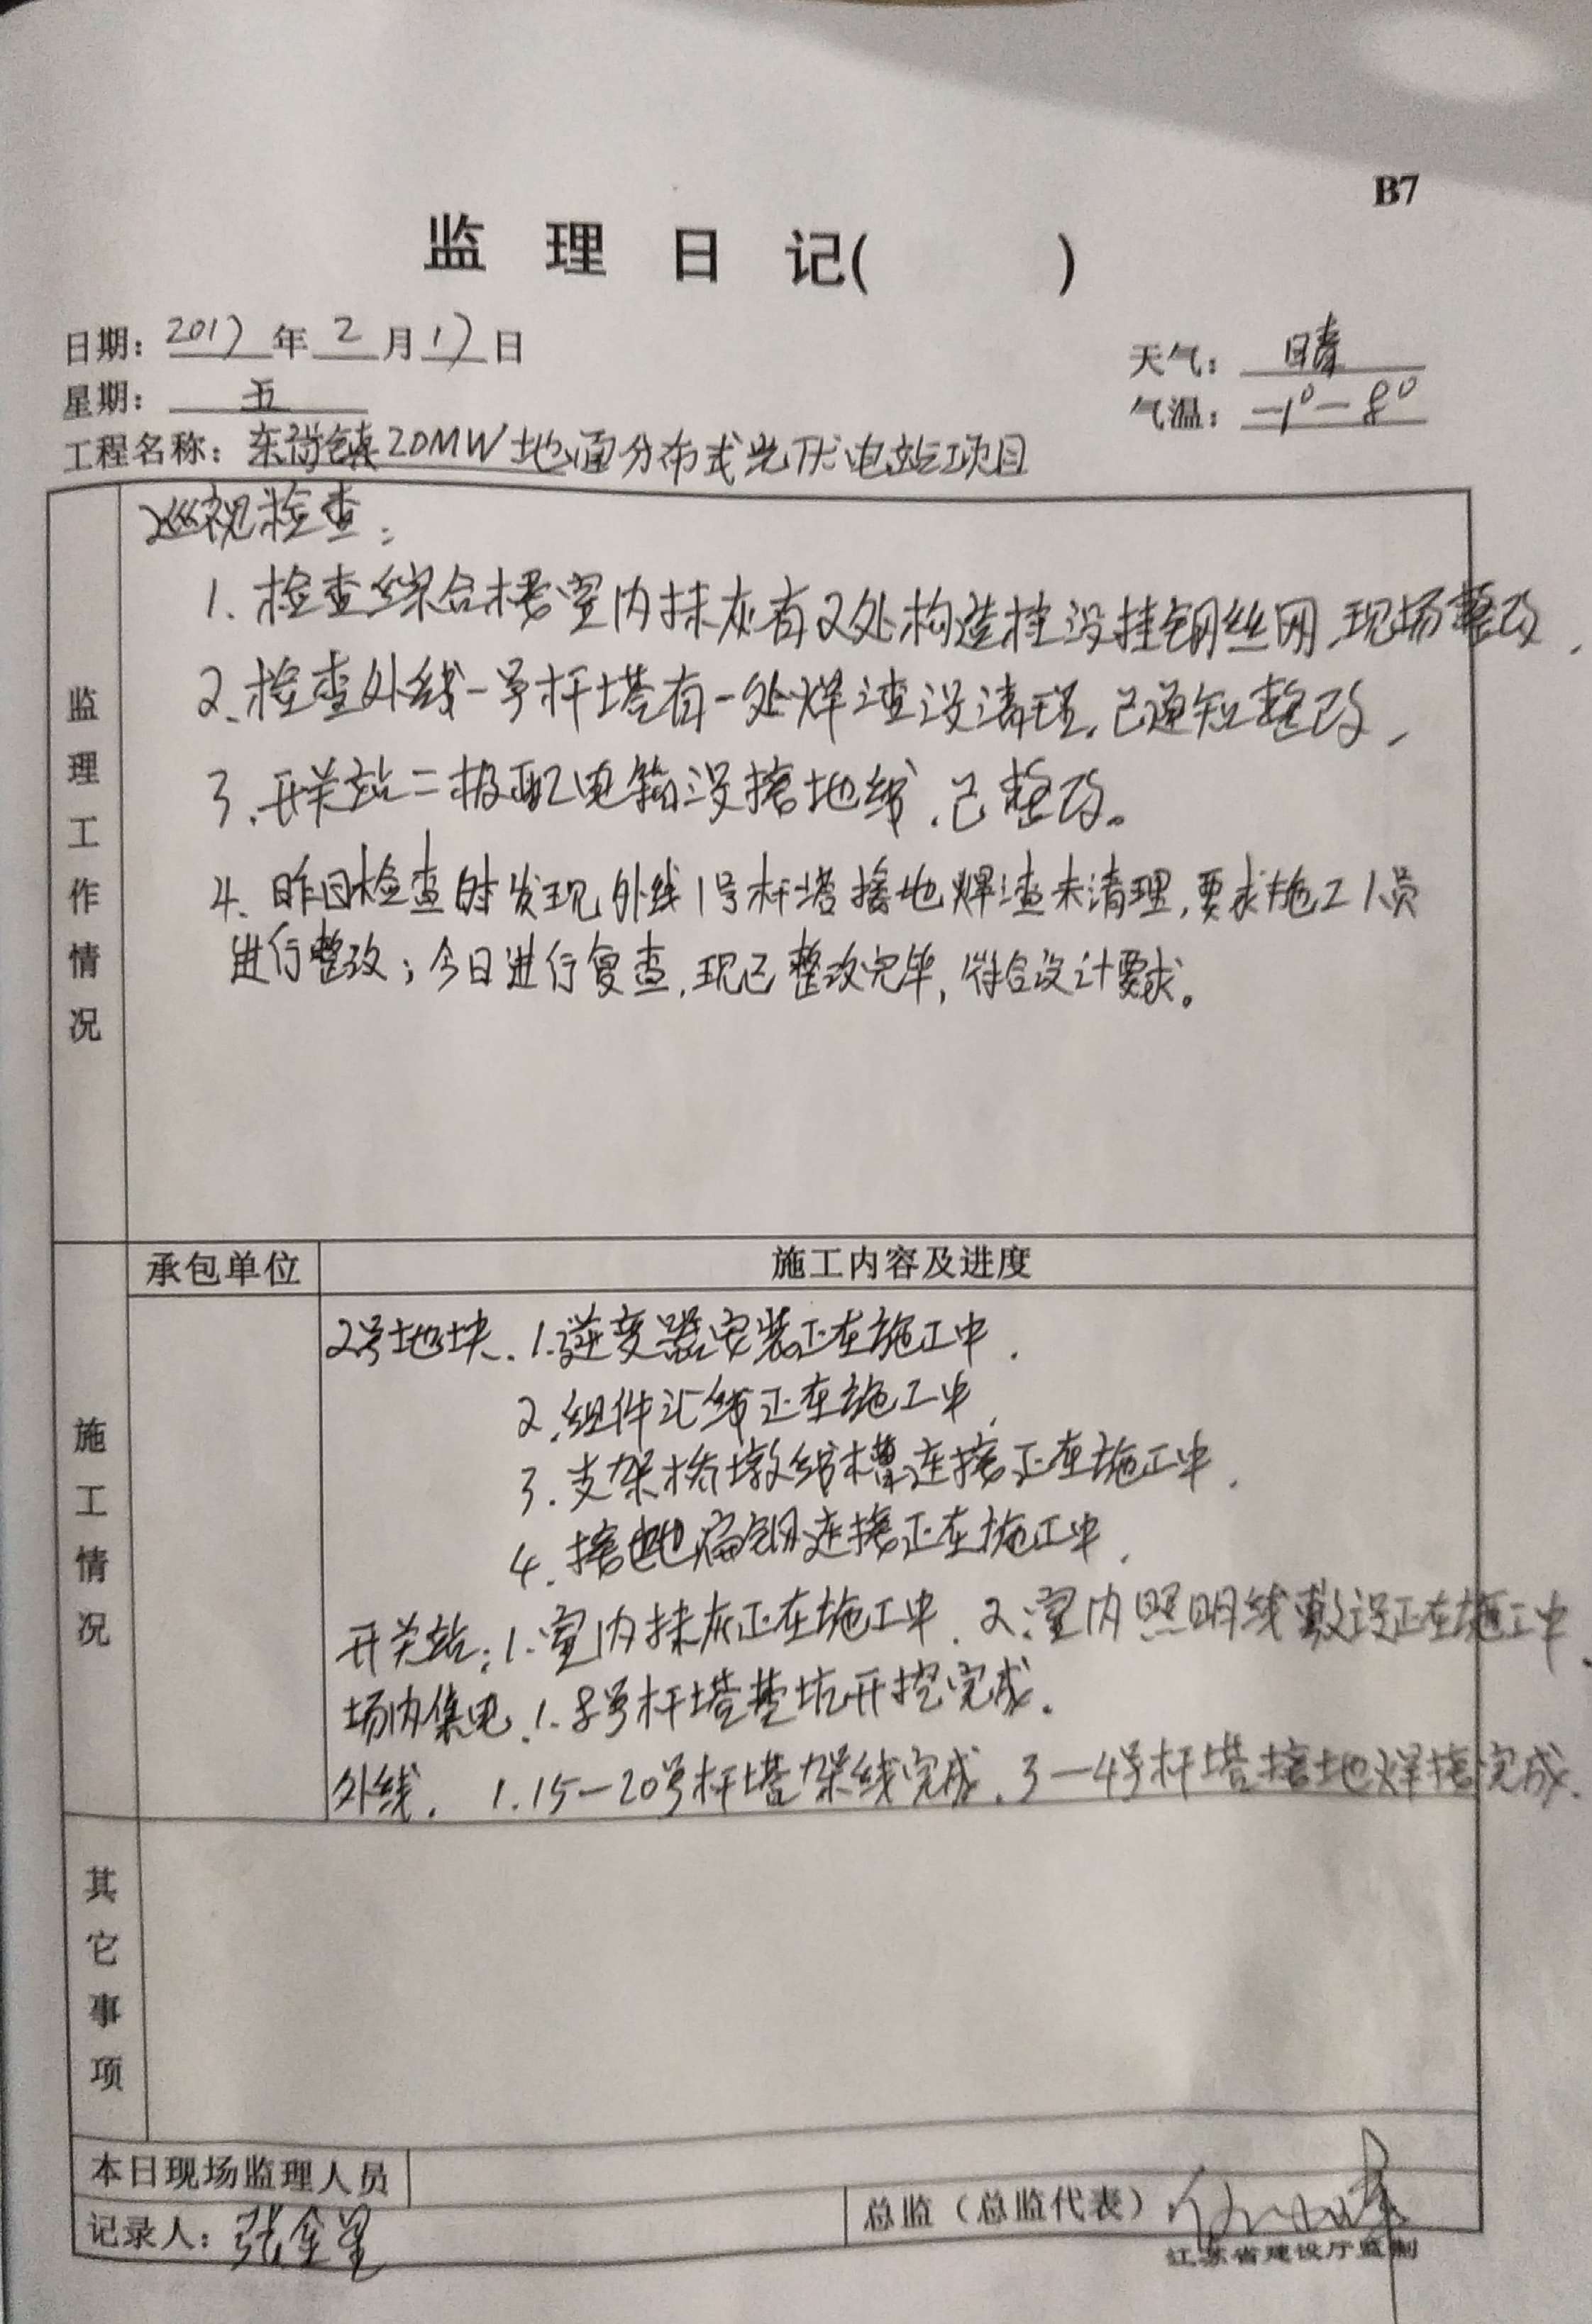 B7
监理日记(　　)
日期: 2017年2月17日
天气: 晴
星期: 五
气温: -1°-8°
工程名称: 东尚镇20MW地面分布式光伏电站项目
监理工作情况
巡视检查:
1、检查综合楼室内抹灰有2处构造柱没挂钢丝网,现场整改,
2、检查外线一号杆塔有一处焊渣没清理,已通知整改,
3、开关站二极配电箱没接地线,已整改。
4、昨日检查时发现外线1号杆塔接地焊渣未清理,要求施工人员
进行整改;今日进行复查,现已整改完毕,符合设计要求。
承包单位 施工内容及进度
施工情况
2号地块、1.逆变器安装正在施工中.
2.组件汇线正在施工中,
3.支架桥墩线槽连接正在施工中.
4.接地扁钢连接正在施工中,
开关站:1.室内抹灰正在施工中、2.室内照明线敷设正在施工中、
场内集电、1.8号杆塔基坑开挖完成.
外线. 1.15-20号杆塔架线完成、3-4号杆塔接地焊接完成.
其它事项
本日现场监理人员
记录人: 张金
总监(总监代表)
江苏省建设厅监制